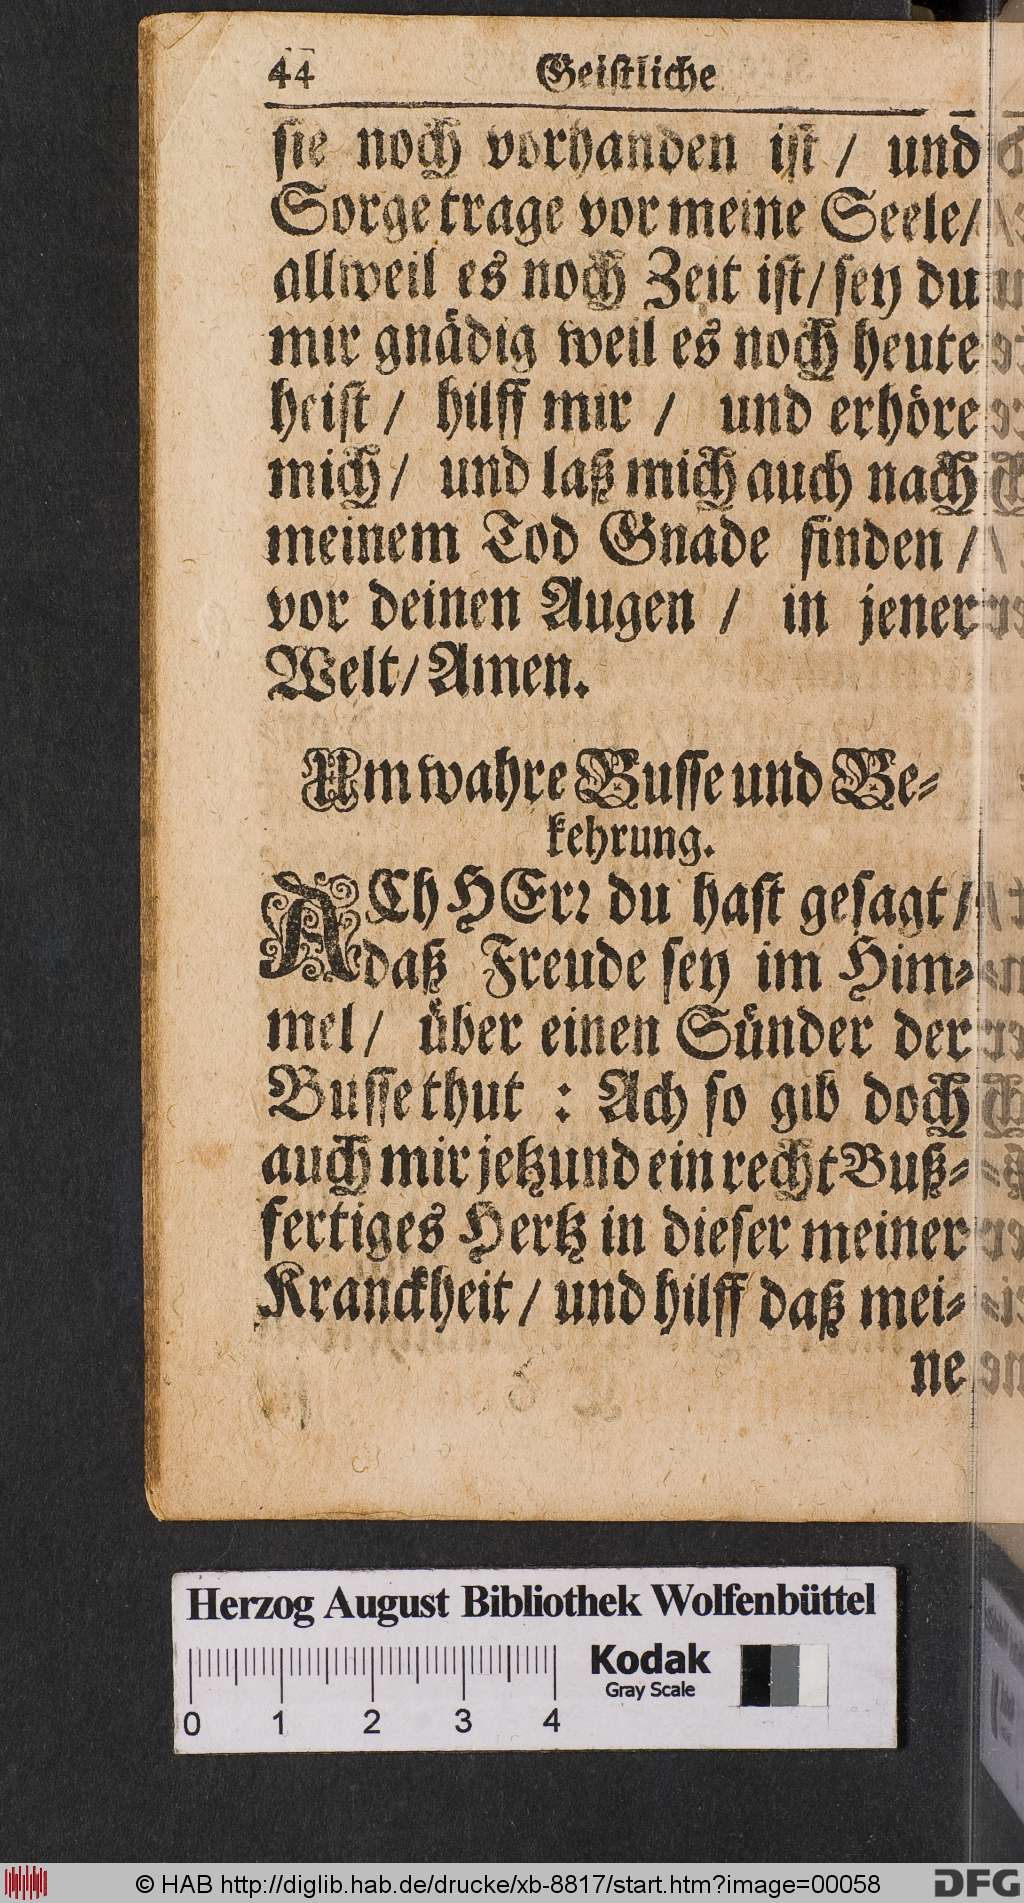 44 Geistliche
sie noch vorhanden ist / und
Sorge trage vor meine Seele/
allweil es noch Zeit ist/ sey du
mir gnädig weil es noch heute
heist / hilff mir / und erhöre
mich/ und laß mich auch nach
meinem Tod Gnade finden /
vor deinen Augen / in jener
Welt/ Amen.
Um wahre Busse und Be-
kehrung.
ACh HErr du hast gesagt /
daß Freude sey im Him-
mel/ über einen Sünder der
Busse thut : Ach so gib doch
auch mir jetzund ein recht Buß-
fertiges Hertz in dieser meiner
Kranckheit / und hilff daß mei-
ne
Herzog August Bibliothek Wolfenbüttel
Kodak
Gray Scale
0 1 2 3 4
© HAB http://diglib.hab.de/drucke/xb-8817/start.htm?image=00058
DFG